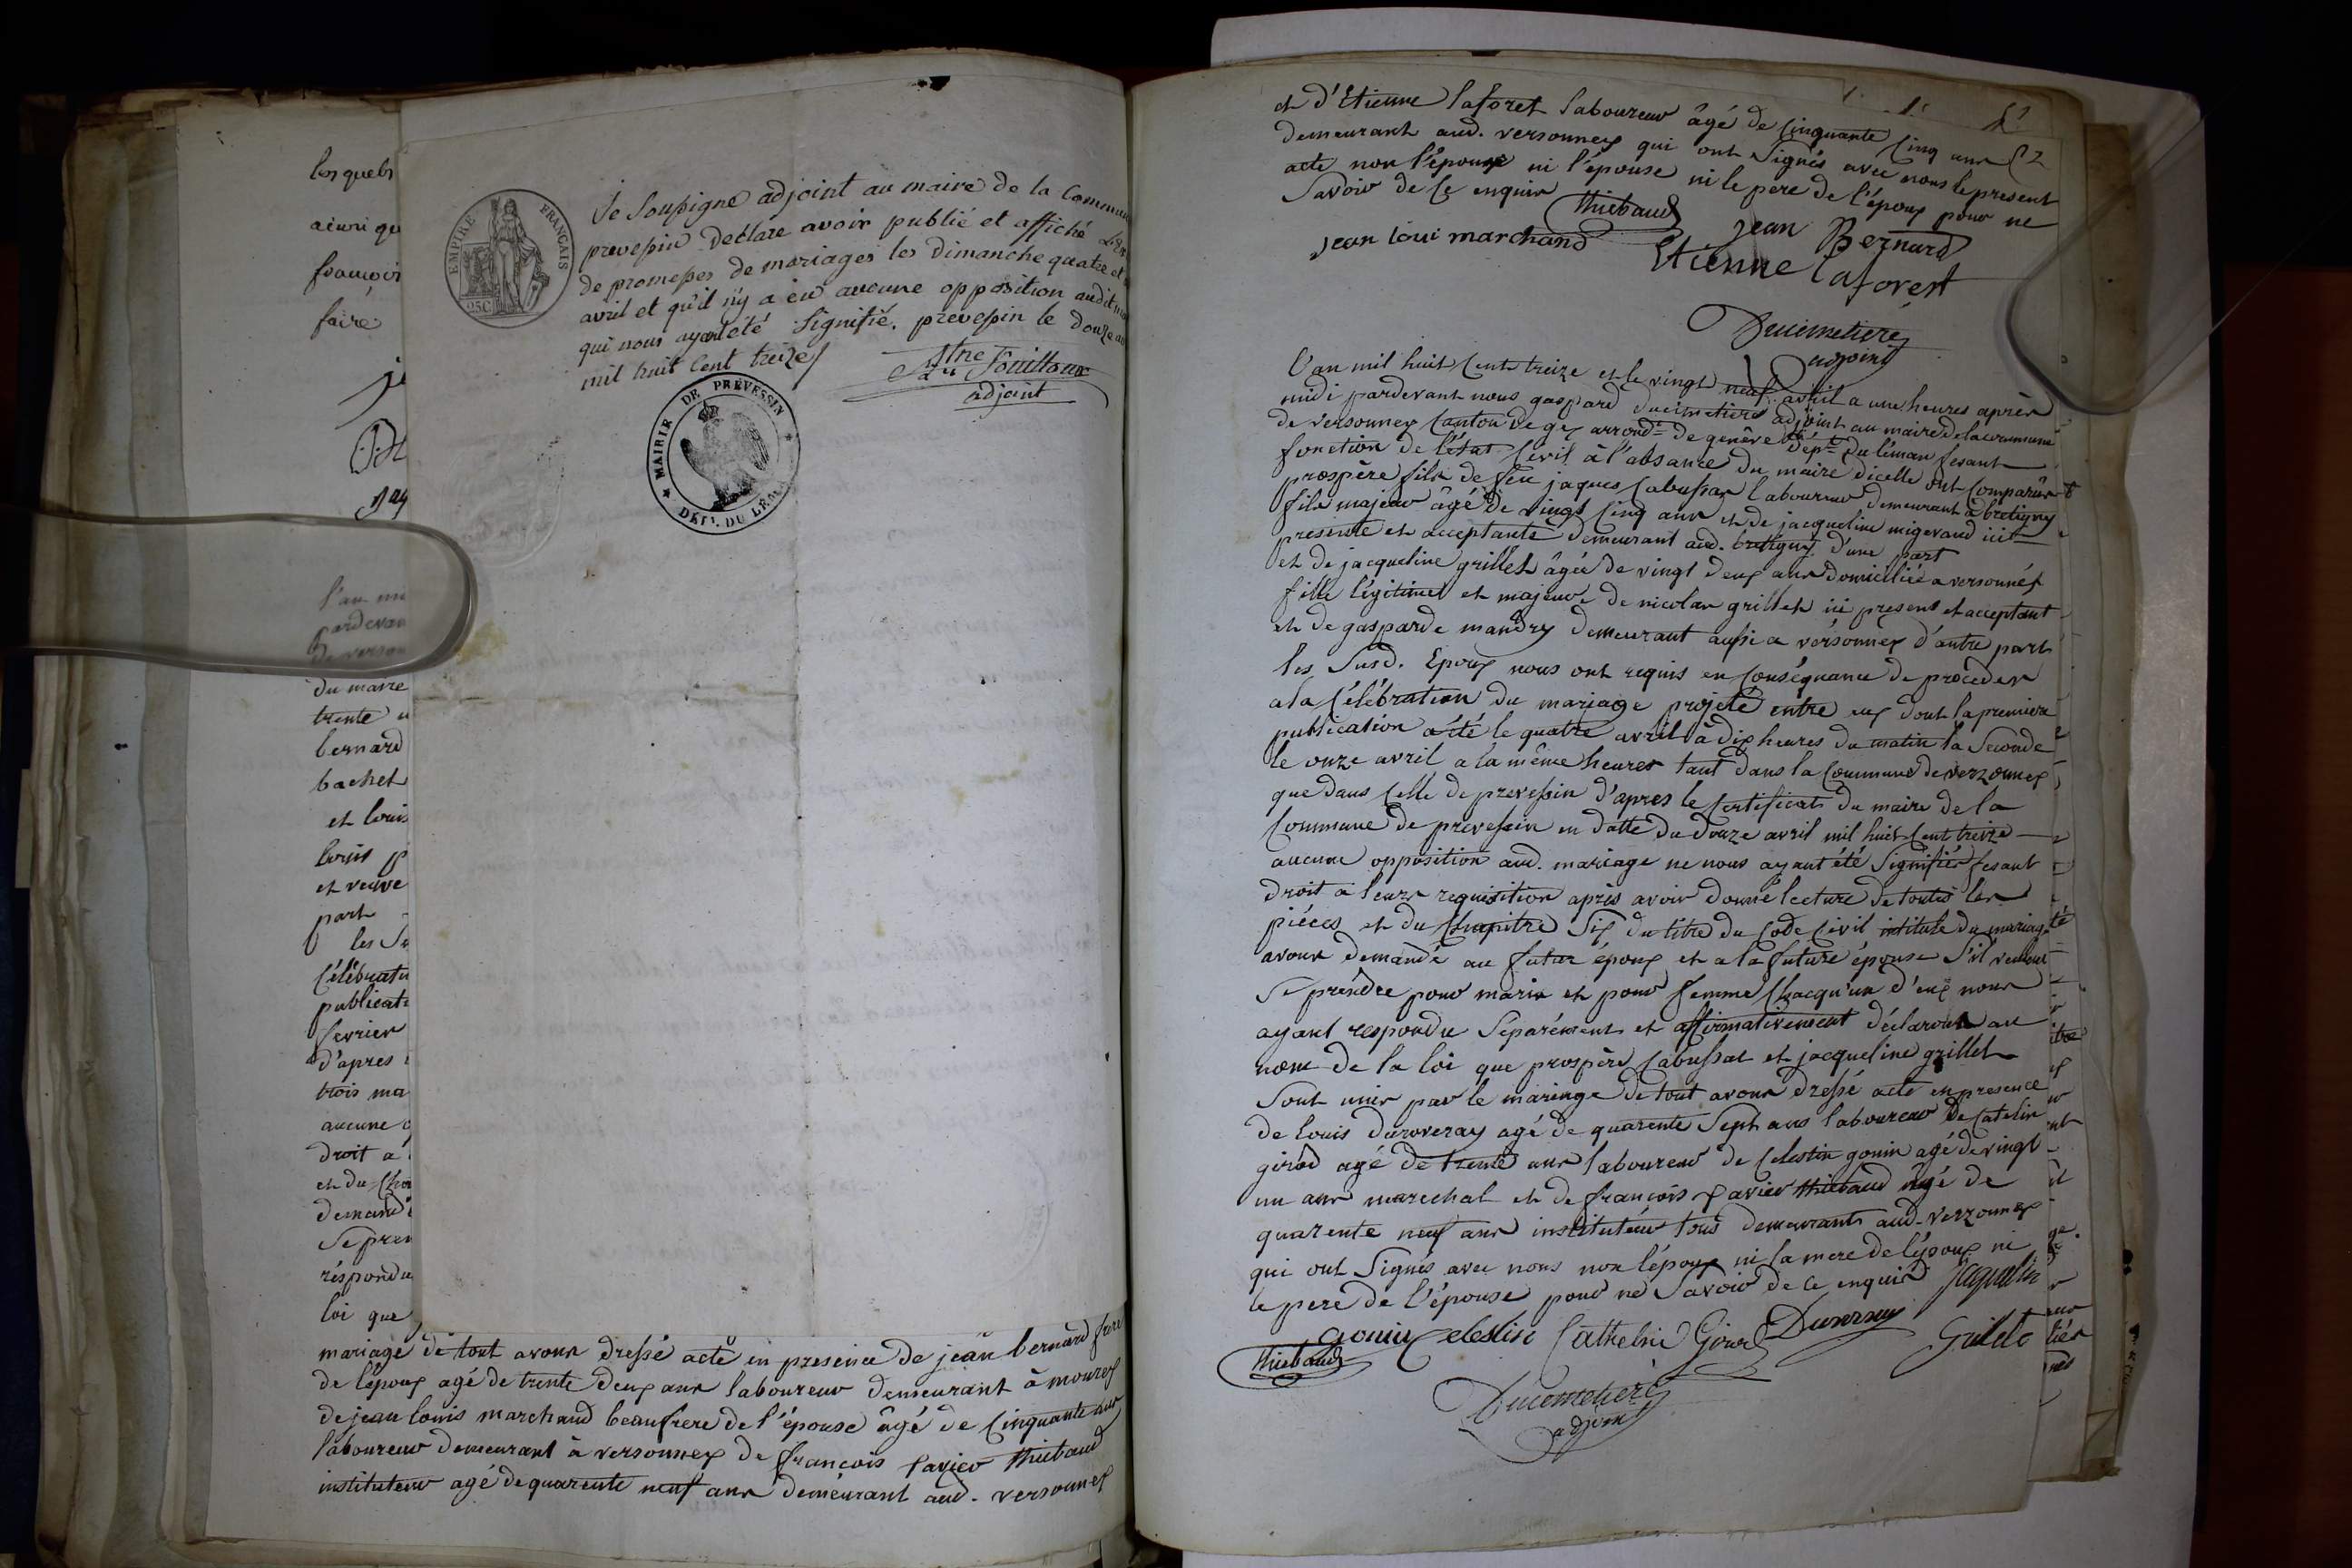 les quels
ainsi qu
françois
faire
l'an mi
pardevan
de verson
du maire
trente
bernard
bachet
et louis
louis
et veuve
part
les Su
Célébratio
publicati
fevrier
d'apres
trois ma
aucune o
droit a
et du Cha
demandé
Se pren
répondu
loi que
EMPIRE FRANÇAIS
25C
Je Soussigné adjoint au maire de la Commun
prevessin declare avoir publié et affiché
de promesses de mariages les dimanche quatre et
avril et qu'il n'y a eu aucune opposition audit
qui nous ayant été Signifié. prevessin le douze
mil huit Cent treize
Fouilloux
adjoint
MAIRIE DE PREVESSIN
DÉPt. DU LÉMAN
mariage de tout avons dressé acte en presence de jean bernard frere
de l'époux agé de trente deux ans laboureur demeurant à mourex
de jean louis marchand beaufrere de l'épouse âgé de Cinquante ans
laboureur demeurant à versonnex de françois Xavier thiebaud
instituteur agé de quarente neuf ans demeurant aud. versonnex
et d'Etienne laforet laboureur âgé de Cinquante Cinq ans
demeurant aud. versonnex qui ont Signés avec nous le present
acte non l'époux ni l'épouse ni le pere de l'époux pour ne
Savoir de Ce enquir
thiebaud
jean Bernard
jean loui marchand
Etienne Laforest
Ducimetiere
adjoint
l'an mil huit Cents treize et le vingt neuf avril a une heures après
midi pardevant nous gaspard ducimetiere adjoint au maire de la commune
de versonnex Canton de gex arrond.t de genêve dép.t du léman fesant
fonction de l'état Civil à l'absance du maire dicelle ont Comparûs
prospère fils de feu jaques Cabussat laboureur demeurant à bretigny
fils majeur âgé de vingt Cinq ans et de jacqueline migerand ici
presente et acceptante demeurant aud. bretigny d'une part
et de jacqueline grillet âgée de vingt deux ans domiciliée a versonnex
fille légitime et majeure de nicolas grillet ici present et acceptant
et de gasparde mandry demeurant aussi a versonnex d'autre part
les Susd. Epoux nous ont requis en Conséquance de proceder
a la Célébration du mariage projeté entre eux dont la premiere
publication a été le quatre avril à dix heures du matin la Seconde
le onze avril a la même heures tant dans la Commune de verzonnex
que dans Celle de prevessin d'apres le Certificat du maire de la
Commune de prevessin en datte du douze avril mil huit Cent treize
aucune opposition aud. mariage ne nous ayant été Signifiée fesant
droit a leurs requisition après avoir donné lecture de toutes les
piéces et du Chapitre Six du titre du Code Civil intitulé du mariage
avons demandé au futur époux et a la future épouse S'il veulent
Se prendre pour maris et pour femme Chacqu'un d'eux nous
ayant respondu Séparément et affirmativement déclarons au
nom de la loi que prospère Cabussat et jacqueline grillet
Sont unis par le mariage de tout avons dressé acte en presence
de louis duroveray agé de quarente Sept ans laboureur de Catelin
girod agé de trente ans laboureur de Celestin gonin agé de vingt
un ans marechal et de françois Xavier thiebaud âgé de
quarente neuf ans instituteur tous demeurants aud. verzonnex
qui ont Signés avec nous non l'époux ni la mere de l'époux ni
le pere de l'épouse pour ne Savoir de Ce enquis
jaquelin
gonin Celestin Cathelin Girod
thiebaud
Ducimetiere
adjoin